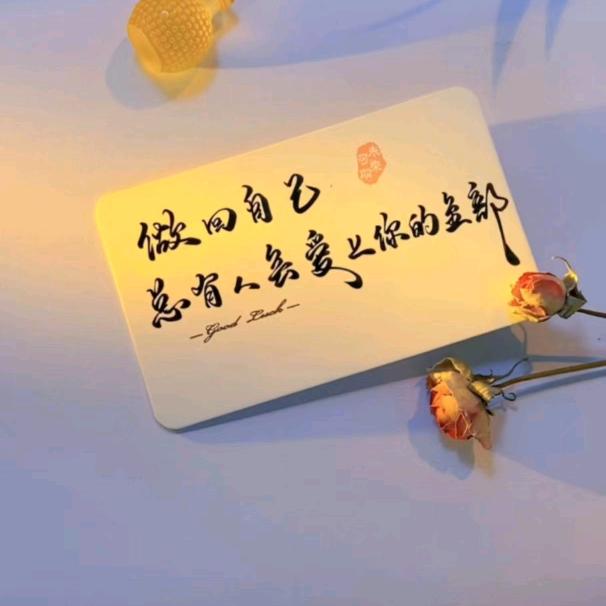 做回自己
总有人会爱上你的全部
—Good Luck—
未来可期